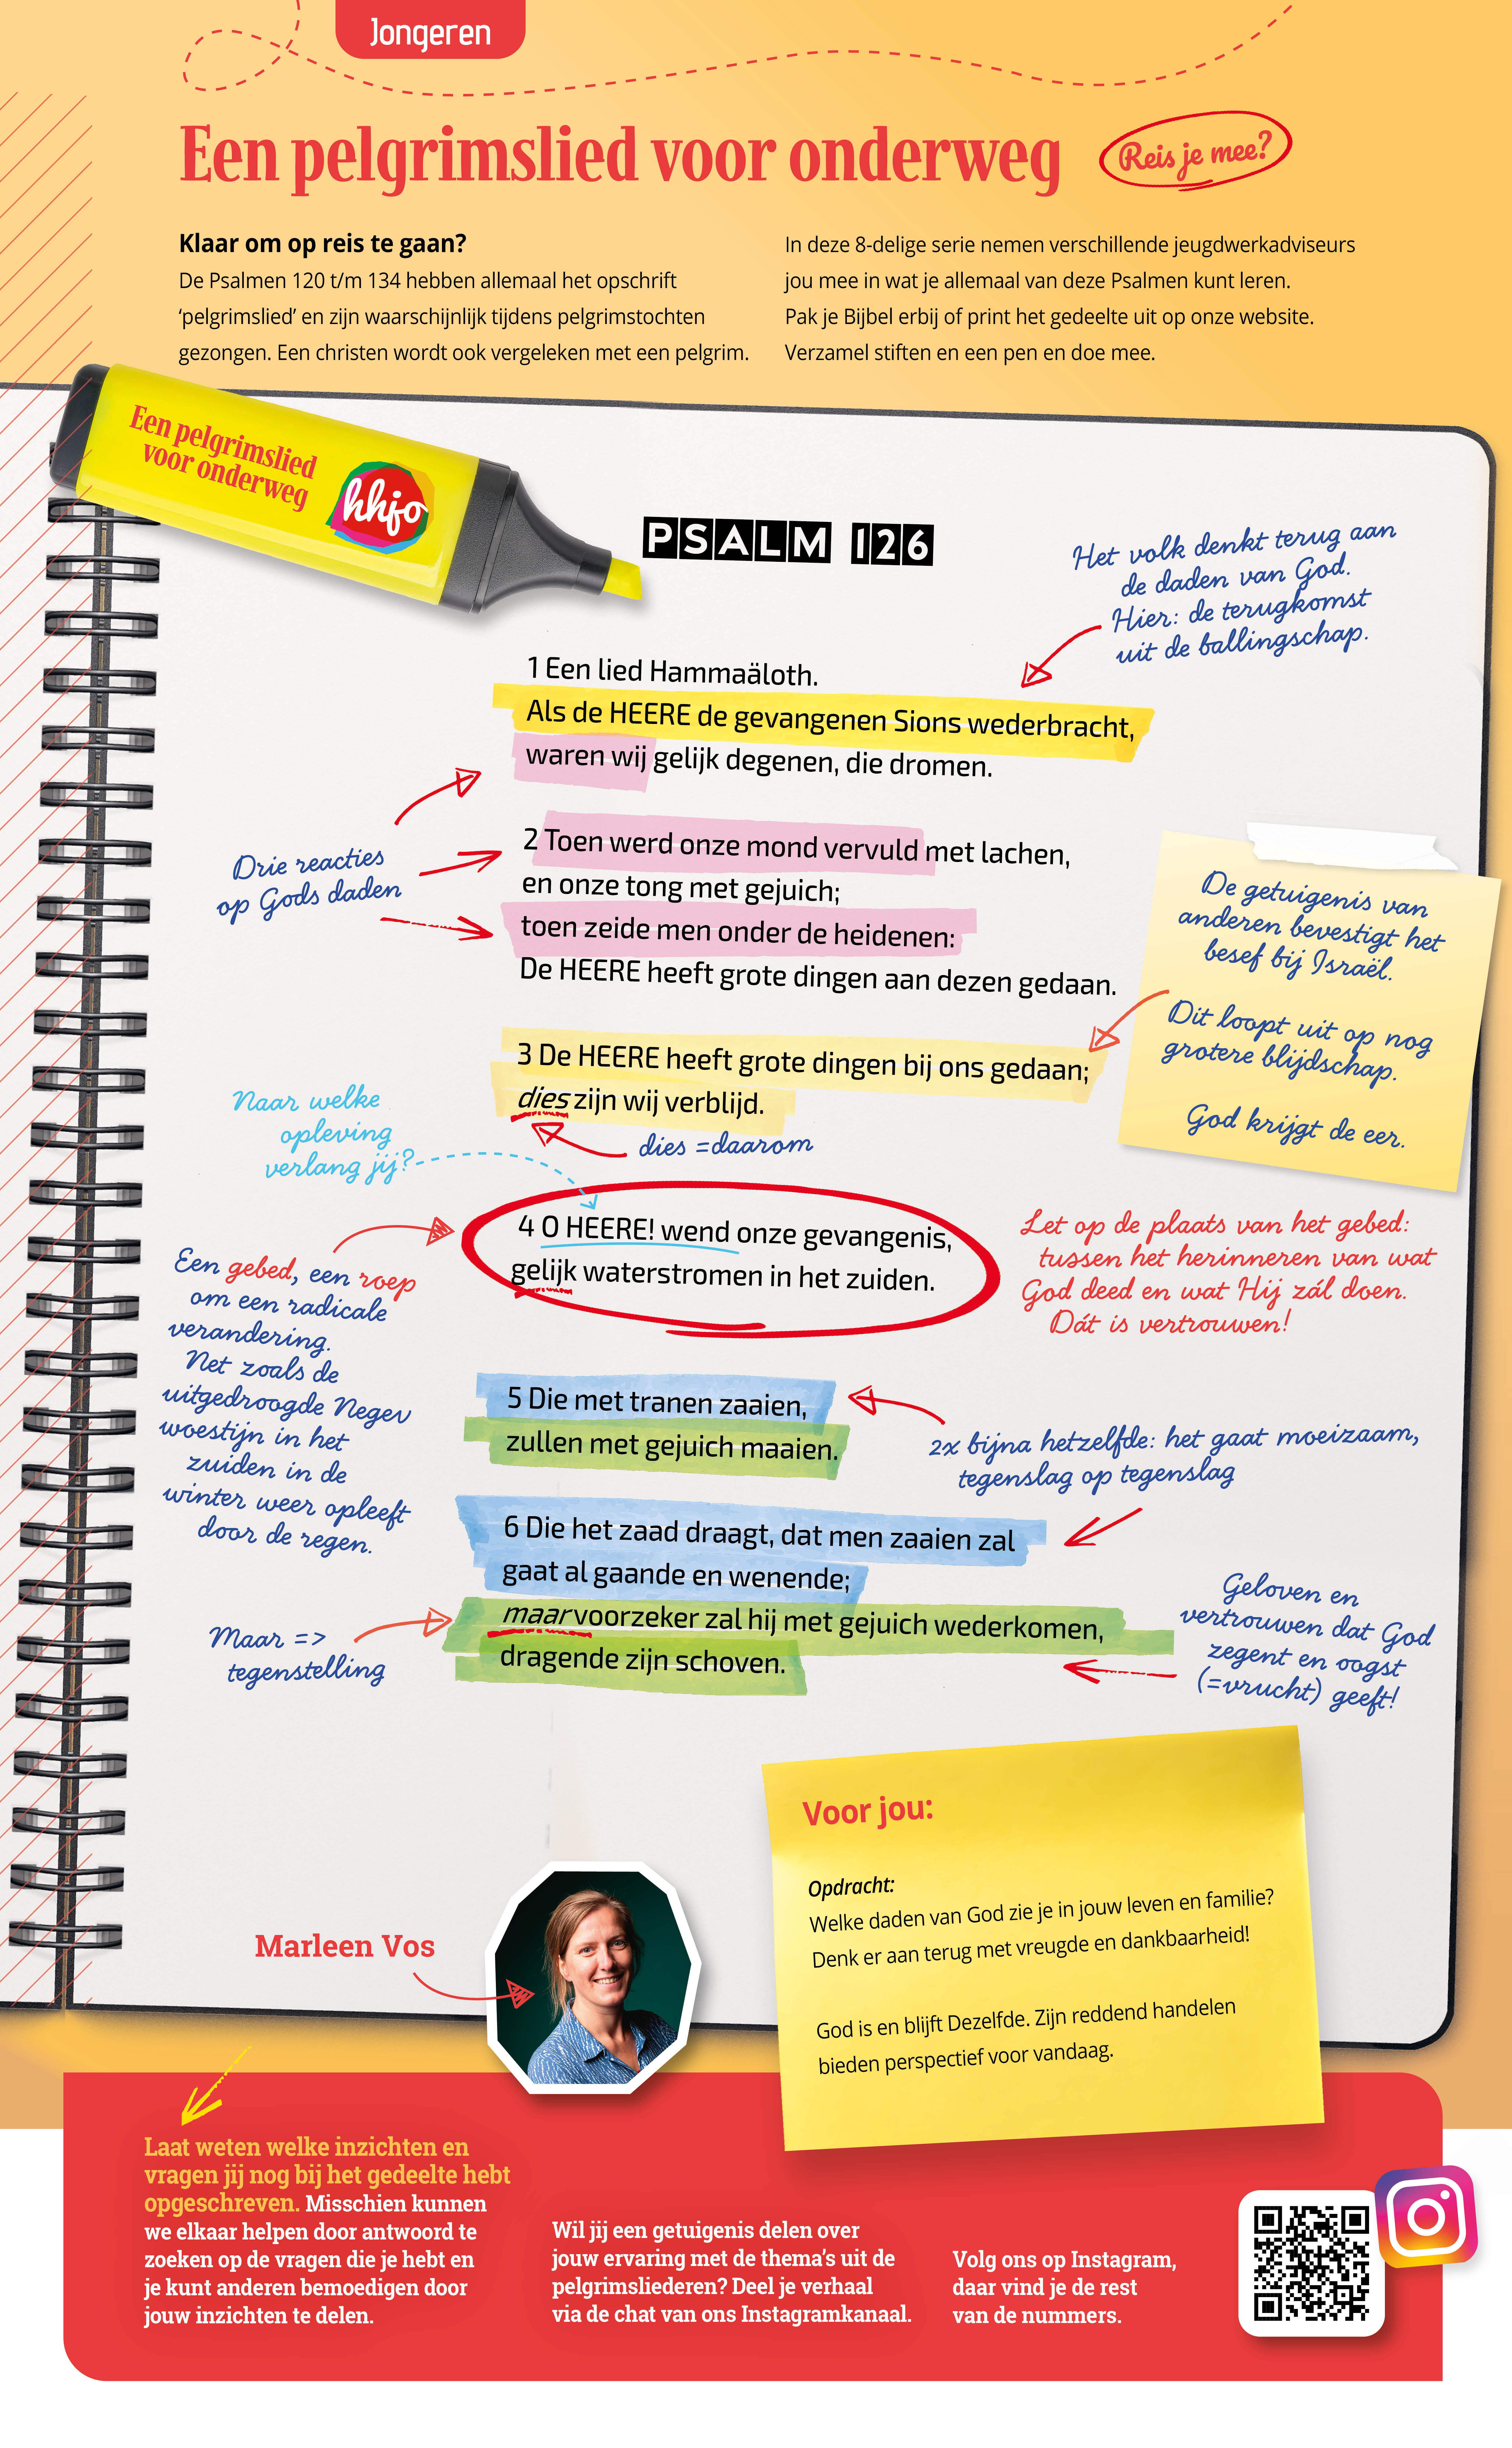 Jongeren
Een pelgrimslied voor onderweg
Reis je mee?
Klaar om op reis te gaan?
De Psalmen 120 t/m 134 hebben allemaal het opschrift
‘pelgrimslied’ en zijn waarschijnlijk tijdens pelgrimstochten
gezongen. Een christen wordt ook vergeleken met een pelgrim.
In deze 8-delige serie nemen verschillende jeugdwerkadviseurs
jou mee in wat je allemaal van deze Psalmen kunt leren.
Pak je Bijbel erbij of print het gedeelte uit op onze website.
Verzamel stiften en een pen en doe mee.
Een pelgrimslied
voor onderweg
hhjo
PSALM 126
Het volk denkt terug aan
de daden van God.
Hier: de terugkomst
uit de ballingschap.
1 Een lied Hammaäloth.
Als de HEERE de gevangenen Sions wederbracht,
waren wij gelijk degenen, die dromen.
Drie reacties
op Gods daden
2 Toen werd onze mond vervuld met lachen,
en onze tong met gejuich;
toen zeide men onder de heidenen:
De HEERE heeft grote dingen aan dezen gedaan.
De getuigenis van
anderen bevestigt het
besef bij Israël.
Dit loopt uit op nog
grotere blijdschap.
God krijgt de eer.
3 De HEERE heeft grote dingen bij ons gedaan;
dies zijn wij verblijd.
dies =daarom
Naar welke
opleving
verlang jij?
4 O HEERE! wend onze gevangenis,
gelijk waterstromen in het zuiden.
Let op de plaats van het gebed:
tussen het herinneren van wat
God deed en wat Hij zál doen.
Dát is vertrouwen!
Een gebed, een roep
om een radicale
verandering.
Net zoals de
uitgedroogde Negev
woestijn in het
zuiden in de
winter weer opleeft
door de regen.
5 Die met tranen zaaien,
zullen met gejuich maaien.
2x bijna hetzelfde: het gaat moeizaam,
tegenslag op tegenslag
6 Die het zaad draagt, dat men zaaien zal
gaat al gaande en wenende;
maar voorzeker zal hij met gejuich wederkomen,
dragende zijn schoven.
Maar =>
tegenstelling
Geloven en
vertrouwen dat God
zegent en oogst
(=vrucht) geeft!
Voor jou:
Opdracht:
Welke daden van God zie je in jouw leven en familie?
Denk er aan terug met vreugde en dankbaarheid!
God is en blijft Dezelfde. Zijn reddend handelen
bieden perspectief voor vandaag.
Marleen Vos
Laat weten welke inzichten en
vragen jij nog bij het gedeelte hebt
opgeschreven. Misschien kunnen
we elkaar helpen door antwoord te
zoeken op de vragen die je hebt en
je kunt anderen bemoedigen door
jouw inzichten te delen.
Wil jij een getuigenis delen over
jouw ervaring met de thema’s uit de
pelgrimsliederen? Deel je verhaal
via de chat van ons Instagramkanaal.
Volg ons op Instagram,
daar vind je de rest
van de nummers.